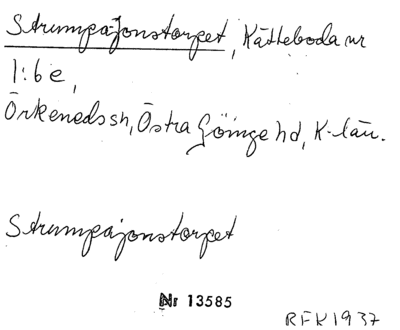 Strumpajonstorpet, Kätteboda nr
1:6 e,
Örkeneds sn, Östra Göinge hd, K-län.
Strumpajonstorpet
Nr 13585
RFK 1937